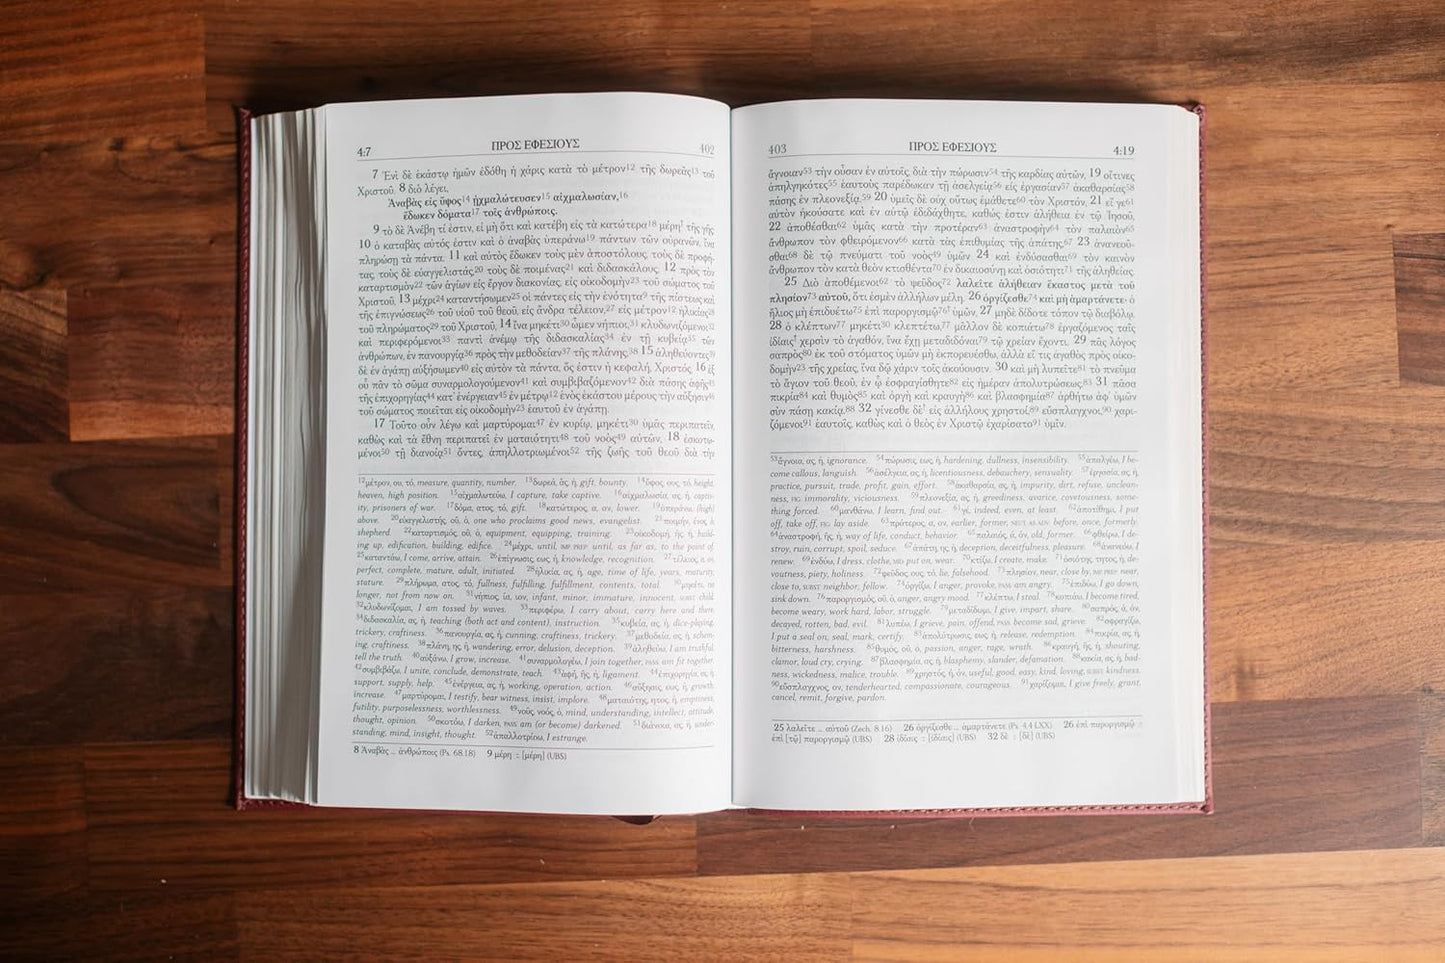 4:7 ΠΡΟΣ ΕΦΕΣΙΟΥΣ 402
7 Ἑνὶ δὲ ἑκάστῳ ἡμῶν ἐδόθη ἡ χάρις κατὰ τὸ μέτρον12 τῆς δωρεᾶς13 τοῦ
Χριστοῦ. 8 διὸ λέγει,
Ἀναβὰς εἰς ὕψος14 ᾐχμαλώτευσεν15 αἰχμαλωσίαν,16
ἔδωκεν δόματα17 τοῖς ἀνθρώποις.
9 τὸ δὲ Ἀνέβη τί ἐστιν, εἰ μὴ ὅτι καὶ κατέβη εἰς τὰ κατώτερα18 μέρη⸆ τῆς γῆς;
10 ὁ καταβὰς αὐτός ἐστιν καὶ ὁ ἀναβὰς ὑπεράνω19 πάντων τῶν οὐρανῶν, ἵνα
πληρώσῃ τὰ πάντα. 11 καὶ αὐτὸς ἔδωκεν τοὺς μὲν ἀποστόλους, τοὺς δὲ προφή-
τας, τοὺς δὲ εὐαγγελιστάς,20 τοὺς δὲ ποιμένας21 καὶ διδασκάλους, 12 πρὸς τὸν
καταρτισμὸν22 τῶν ἁγίων εἰς ἔργον διακονίας, εἰς οἰκοδομὴν23 τοῦ σώματος τοῦ
Χριστοῦ, 13 μέχρι24 καταντήσωμεν25 οἱ πάντες εἰς τὴν ἑνότητα9 τῆς πίστεως καὶ
τῆς ἐπιγνώσεως26 τοῦ υἱοῦ τοῦ θεοῦ, εἰς ἄνδρα τέλειον,27 εἰς μέτρον12 ἡλικίας28
τοῦ πληρώματος29 τοῦ Χριστοῦ, 14 ἵνα μηκέτι30 ὦμεν νήπιοι,31 κλυδωνιζόμενοι32
καὶ περιφερόμενοι33 παντὶ ἀνέμῳ τῆς διδασκαλίας34 ἐν τῇ κυβείᾳ35 τῶν
ἀνθρώπων, ἐν πανουργίᾳ36 πρὸς τὴν μεθοδείαν37 τῆς πλάνης,38 15 ἀληθεύοντες39
δὲ ἐν ἀγάπῃ αὐξήσωμεν40 εἰς αὐτὸν τὰ πάντα, ὅς ἐστιν ἡ κεφαλή, Χριστός, 16 ἐξ
οὗ πᾶν τὸ σῶμα συναρμολογούμενον41 καὶ συμβιβαζόμενον42 διὰ πάσης ἁφῆς43
τῆς ἐπιχορηγίας44 κατ᾽ ἐνέργειαν45 ἐν μέτρῳ12 ἑνὸς ἑκάστου μέρους τὴν αὔξησιν46
τοῦ σώματος ποιεῖται εἰς οἰκοδομὴν23 ἑαυτοῦ ἐν ἀγάπῃ.
17 Τοῦτο οὖν λέγω καὶ μαρτύρομαι47 ἐν κυρίῳ, μηκέτι30 ὑμᾶς περιπατεῖν,
καθὼς καὶ τὰ ἔθνη περιπατεῖ ἐν ματαιότητι48 τοῦ νοὸς49 αὐτῶν, 18 ἐσκοτω-
μένοι50 τῇ διανοίᾳ51 ὄντες, ἀπηλλοτριωμένοι52 τῆς ζωῆς τοῦ θεοῦ διὰ τὴν
12μέτρον, ου, τό, measure, quantity, number. 13δωρεά, ᾶς, ἡ, gift, bounty. 14ὕψος, ους, τό, height,
heaven, high position. 15αἰχμαλωτεύω, I capture, take captive. 16αἰχμαλωσία, ας, ἡ, captiv-
ity, prisoners of war. 17δόμα, ατος, τό, gift. 18κατώτερος, α, ον, lower. 19ὑπεράνω, (high)
above. 20εὐαγγελιστής, οῦ, ὁ, one who proclaims good news, evangelist. 21ποιμήν, ένος, ὁ,
shepherd. 22καταρτισμός, οῦ, ὁ, equipment, equipping, training. 23οἰκοδομή, ῆς, ἡ, build-
ing up, edification, building, edifice. 24μέχρι, until, w/ prep until, as far as, to the point of.
25καταντάω, I come, arrive, attain. 26ἐπίγνωσις, εως, ἡ, knowledge, recognition. 27τέλειος, α, ον,
perfect, complete, mature, adult, initiated. 28ἡλικία, ας, ἡ, age, time of life, years, maturity,
stature. 29πλήρωμα, ατος, τό, fullness, fulfilling, fulfillment, contents, total. 30μηκέτι, no
longer, not from now on. 31νήπιος, ία, ιον, infant, minor, immature, innocent, subst child.
32κλυδωνίζομαι, I am tossed by waves. 33περιφέρω, I carry about, carry here and there.
34διδασκαλία, ας, ἡ, teaching (both act and content), instruction. 35κυβεία, ας, ἡ, dice-playing,
trickery, craftiness. 36πανουργία, ας, ἡ, cunning, craftiness, trickery. 37μεθοδεία, ας, ἡ, schem-
ing, craftiness. 38πλάνη, ης, ἡ, wandering, error, delusion, deception. 39ἀληθεύω, I am truthful,
tell the truth. 40αὐξάνω, I grow, increase. 41συναρμολογέω, I join together, pass am fit together.
42συμβιβάζω, I unite, conclude, demonstrate, teach. 43ἁφή, ῆς, ἡ, ligament. 44ἐπιχορηγία, ας, ἡ,
support, supply, help. 45ἐνέργεια, ας, ἡ, working, operation, action. 46αὔξησις, εως, ἡ, growth,
increase. 47μαρτύρομαι, I testify, bear witness, insist, implore. 48ματαιότης, ητος, ἡ, emptiness,
futility, purposelessness, worthlessness. 49νοῦς, νοός, ὁ, mind, understanding, intellect, attitude,
thought, opinion. 50σκοτόω, I darken, pass am (or become) darkened. 51διάνοια, ας, ἡ, under-
standing, mind, insight, thought. 52ἀπαλλοτριόω, I estrange.
8 Ἀναβὰς ... ἀνθρώποις (Ps. 68.18) 9 μέρη : [μέρη] (UBS)
403 ΠΡΟΣ ΕΦΕΣΙΟΥΣ 4:19
ἄγνοιαν53 τὴν οὖσαν ἐν αὐτοῖς, διὰ τὴν πώρωσιν54 τῆς καρδίας αὐτῶν, 19 οἵτινες
ἀπηλγηκότες55 ἑαυτοὺς παρέδωκαν τῇ ἀσελγείᾳ56 εἰς ἐργασίαν57 ἀκαθαρσίας58
πάσης ἐν πλεονεξίᾳ.59 20 ὑμεῖς δὲ οὐχ οὕτως ἐμάθετε60 τὸν Χριστόν, 21 εἴ γε61
αὐτὸν ἠκούσατε καὶ ἐν αὐτῷ ἐδιδάχθητε, καθώς ἐστιν ἀλήθεια ἐν τῷ Ἰησοῦ,
22 ἀποθέσθαι62 ὑμᾶς κατὰ τὴν προτέραν63 ἀναστροφὴν64 τὸν παλαιὸν65
ἄνθρωπον τὸν φθειρόμενον66 κατὰ τὰς ἐπιθυμίας τῆς ἀπάτης,67 23 ἀνανεοῦ-
σθαι68 δὲ τῷ πνεύματι τοῦ νοὸς49 ὑμῶν 24 καὶ ἐνδύσασθαι69 τὸν καινὸν
ἄνθρωπον τὸν κατὰ θεὸν κτισθέντα70 ἐν δικαιοσύνῃ καὶ ὁσιότητι71 τῆς ἀληθείας.
25 Διὸ ἀποθέμενοι62 τὸ ψεῦδος72 λαλεῖτε ἀλήθειαν ἕκαστος μετὰ τοῦ
πλησίον73 αὐτοῦ, ὅτι ἐσμὲν ἀλλήλων μέλη. 26 ὀργίζεσθε74 καὶ μὴ ἁμαρτάνετε· ὁ
ἥλιος μὴ ἐπιδυέτω75 ἐπὶ παροργισμῷ76⸆ ὑμῶν, 27 μηδὲ δίδοτε τόπον τῷ διαβόλῳ.
28 ὁ κλέπτων77 μηκέτι30 κλεπτέτω,77 μᾶλλον δὲ κοπιάτω78 ἐργαζόμενος ταῖς
ἰδίαις⸆ χερσὶν τὸ ἀγαθόν, ἵνα ἔχῃ μεταδιδόναι79 τῷ χρείαν ἔχοντι. 29 πᾶς λόγος
σαπρὸς80 ἐκ τοῦ στόματος ὑμῶν μὴ ἐκπορευέσθω, ἀλλὰ εἴ τις ἀγαθὸς πρὸς οἰκο-
δομὴν23 τῆς χρείας, ἵνα δῷ χάριν τοῖς ἀκούουσιν. 30 καὶ μὴ λυπεῖτε81 τὸ πνεῦμα
τὸ ἅγιον τοῦ θεοῦ, ἐν ᾧ ἐσφραγίσθητε82 εἰς ἡμέραν ἀπολυτρώσεως.83 31 πᾶσα
πικρία84 καὶ θυμὸς85 καὶ ὀργὴ καὶ κραυγὴ86 καὶ βλασφημία87 ἀρθήτω ἀφ᾽ ὑμῶν
σὺν πάσῃ κακίᾳ.88 32 γίνεσθε δὲ⸆ εἰς ἀλλήλους χρηστοί,89 εὔσπλαγχνοι,90 χαρι-
ζόμενοι91 ἑαυτοῖς, καθὼς καὶ ὁ θεὸς ἐν Χριστῷ ἐχαρίσατο91 ὑμῖν.
53ἄγνοια, ας, ἡ, ignorance. 54πώρωσις, εως, ἡ, hardening, dullness, insensibility. 55ἀπαλγέω, I be-
come callous, languish. 56ἀσέλγεια, ας, ἡ, licentiousness, debauchery, sensuality. 57ἐργασία, ας, ἡ,
practice, pursuit, trade, profit, gain, effort. 58ἀκαθαρσία, ας, ἡ, impurity, dirt, refuse, unclean-
ness, fig immorality, viciousness. 59πλεονεξία, ας, ἡ, greediness, avarice, covetousness, some-
thing forced. 60μανθάνω, I learn, find out. 61γέ, indeed, even, at least. 62ἀποτίθημι, I put
off, take off, fig lay aside. 63πρότερος, α, ον, earlier, former, neut as adv before, once, formerly.
64ἀναστροφή, ῆς, ἡ, way of life, conduct, behavior. 65παλαιός, ά, όν, old, former. 66φθείρω, I de-
stroy, ruin, corrupt, spoil, seduce. 67ἀπάτη, ης, ἡ, deception, deceitfulness, pleasure. 68ἀνανεόω, I
renew. 69ἐνδύω, I dress, clothe, mid put on, wear. 70κτίζω, I create, make. 71ὁσιότης, τητος, ἡ, de-
voutness, piety, holiness. 72ψεῦδος, ους, τό, lie, falsehood. 73πλησίον, near, close by, w/ prep near,
close to, subst neighbor, fellow. 74ὀργίζω, I anger, provoke, pass am angry. 75ἐπιδύω, I go down,
sink down. 76παροργισμός, οῦ, ὁ, anger, angry mood. 77κλέπτω, I steal. 78κοπιάω, I become tired,
become weary, work hard, labor, struggle. 79μεταδίδωμι, I give, impart, share. 80σαπρός, ά, όν,
decayed, rotten, bad, evil. 81λυπέω, I grieve, pain, offend, pass become sad, grieve. 82σφραγίζω,
I put a seal on, seal, mark, certify. 83ἀπολύτρωσις, εως, ἡ, release, redemption. 84πικρία, ας, ἡ,
bitterness, harshness. 85θυμός, οῦ, ὁ, passion, anger, rage, wrath. 86κραυγή, ῆς, ἡ, shouting,
clamor, loud cry, crying. 87βλασφημία, ας, ἡ, blasphemy, slander, defamation. 88κακία, ας, ἡ, bad-
ness, wickedness, malice, trouble. 89χρηστός, ή, όν, useful, good, easy, kind, loving, subst kindness.
90εὔσπλαγχνος, ον, tenderhearted, compassionate, courageous. 91χαρίζομαι, I give freely, grant,
cancel, remit, forgive, pardon.
25 λαλεῖτε ... αὐτοῦ (Zech. 8.16) 26 ὀργίζεσθε ... ἁμαρτάνετε (Ps. 4.4 LXX) 26 ἐπὶ παροργισμῷ :
ἐπὶ [τῷ] παροργισμῷ (UBS) 28 ἰδίαις : [ἰδίαις] (UBS) 32 δὲ : [δὲ] (UBS)